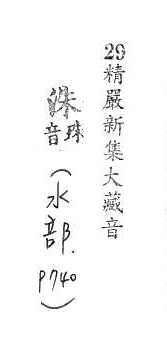 29精嚴新集大藏音
洙音珠(水部.P740)